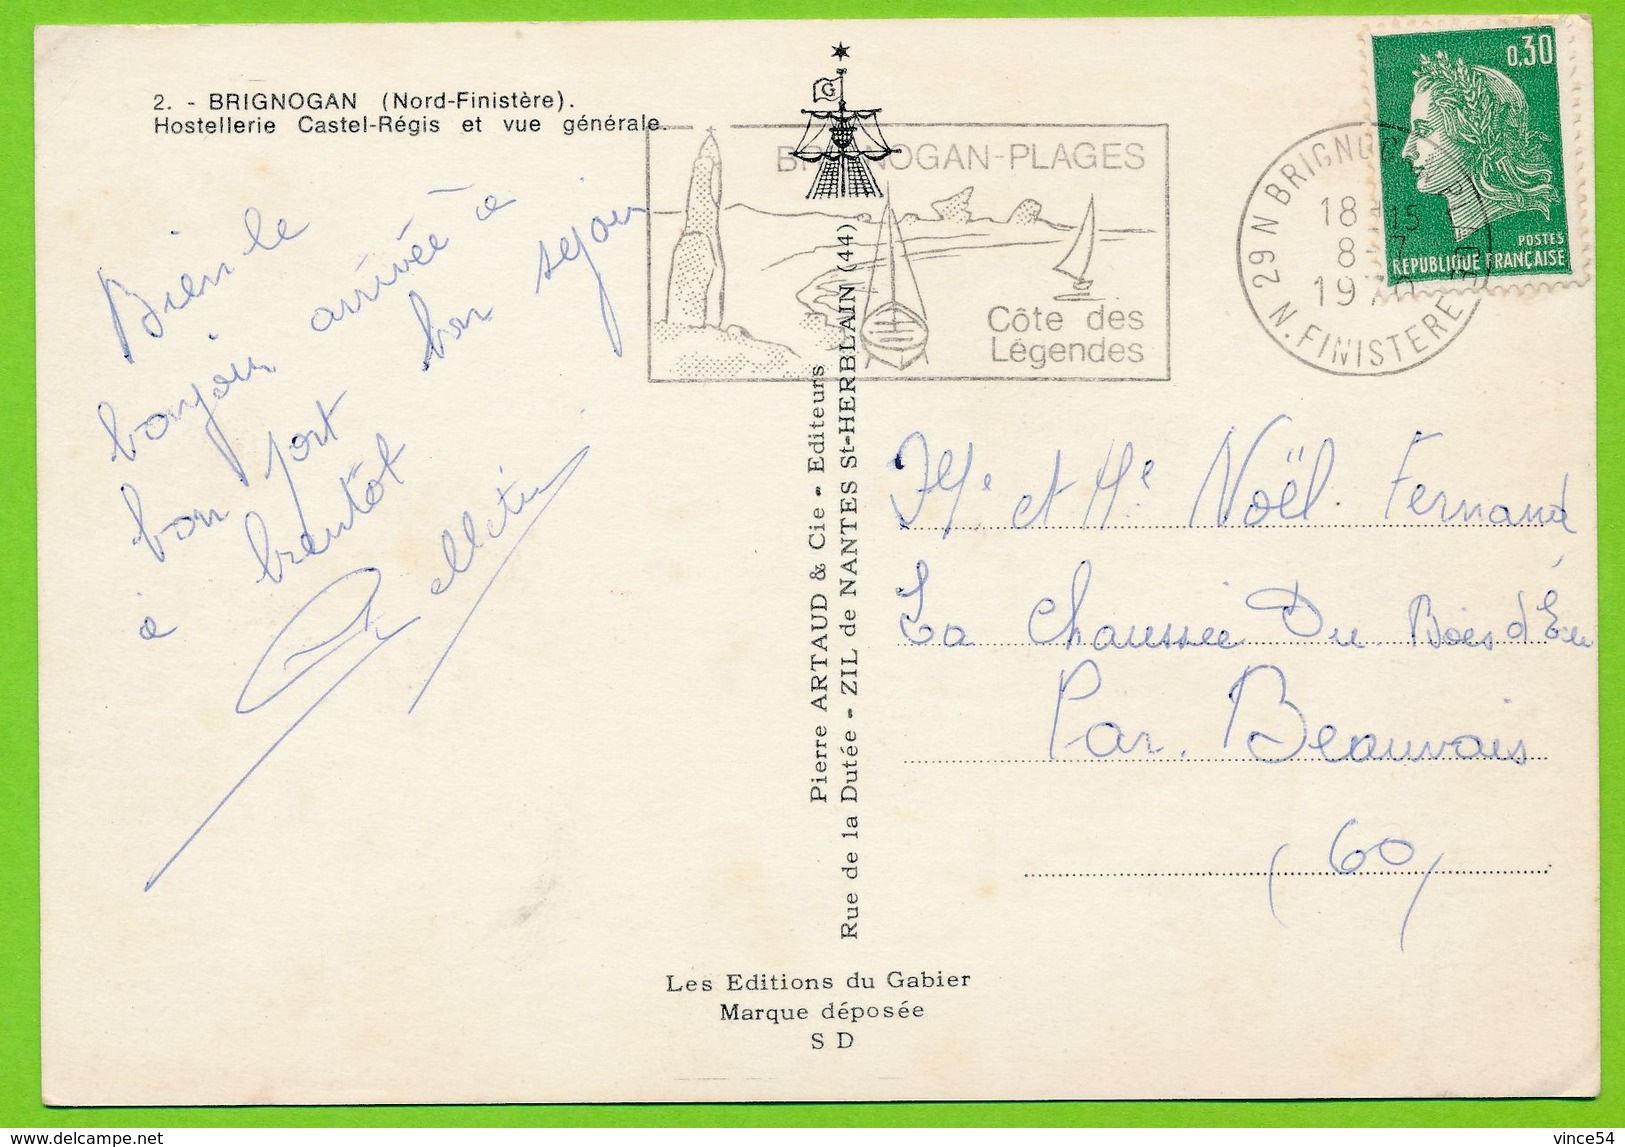 2. - BRIGNOGAN (Nord-Finistère).
Hostellerie Castel-Régis et vue générale.
G
BRIGNOGAN-PLAGES
Côte des
Légendes
29 N BRIGNOGAN PL
18 H 15
8 7
1970
N. FINISTERE
0,30
POSTES
REPUBLIQUE FRANÇAISE
Bien le
bonjour arrivée à
bon port bon séjour
à bientôt
Pierre ARTAUD & Cie - Editeurs
Rue de la Dutée - ZIL de NANTES St-HERBLAIN (44)
Me et Me Noël Fernand
La Chaussée Du Bois d'Eu
Par. Beauvais
(60)
Les Editions du Gabier
Marque déposée
S D
delcampe.net
vince54